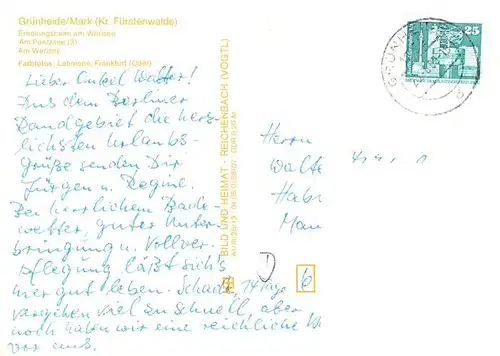 Grünheide/Mark (Kr. Fürstenwalde)
Erholungsheim am Werlsee
Am Peetzsee (3)
Am Werlsee
Farbfotos: Lehmann, Frankfurt (Oder)
Lieber Onkel Walter!
Aus dem Berliner
Randgebiet die herz-
lichsten Urlaubs-
grüße senden Dir
Jürgen u. Regine.
Bei herrlichem Bade-
wetter, guter Unter-
bringung u. Vollver-
pflegung läßt sich's
hier gut leben. Schade, 14 Tage
vergehen viel zu schnell, aber
noch haben wir eine reichliche W
vor uns.
BILD UND HEIMAT · REICHENBACH (VOGTL)
GRÜNH
25
Herrn
Walte
Habn
Man